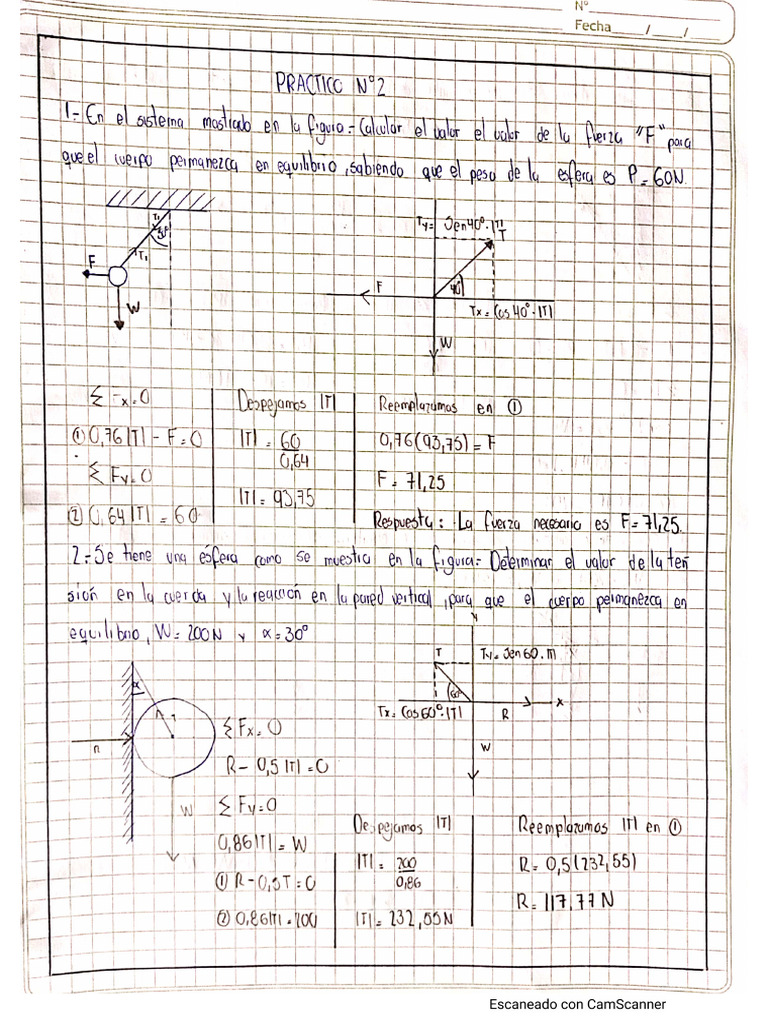 N°
Fecha / /
PRACTICO N°2
1.- En el sistema mostrado en la figura = Calcular el valor el valor de la fuerza "F" para
que el cuerpo permanezca en equilibrio, sabiendo que el peso de la esfera es P = 60N.
Ty= Sen40°·|T|
T
F
40°
Tx = Cos 40°·|T|
W
F
T₁
W
Σ Fx=0
① 0,76|T| - F = 0
Σ Fy=0
② 0,64|T| = 60
Despejamos |T|
|T| = 60
0,64
|T| = 93,75
Reemplazamos en ①
0,76(93,75) = F
F = 71,25
Respuesta: La fuerza necesaria es F=71,25.
2.- Se tiene una esfera como se muestra en la figura = Determinar el valor de la ten
sión en la cuerda y la reacción en la pared vertical, para que el cuerpo permanezca en
equilibrio, W = 200N y α = 30°
Y
T
Ty= Sen 60·|T|
60°
X
Tx= Cos60°·|T|
R
W
α
T
n
W
Σ Fx=0
R - 0,5 |T| = 0
Σ Fy=0
0,86|T| = W
① R - 0,5T = 0
② 0,86|T| = 200
Despejamos |T|
|T| = 200
0,86
|T| = 232,55N
Reemplazamos |T| en ①
R= 0,5(232,55)
R= 117,77 N
Escaneado con CamScanner